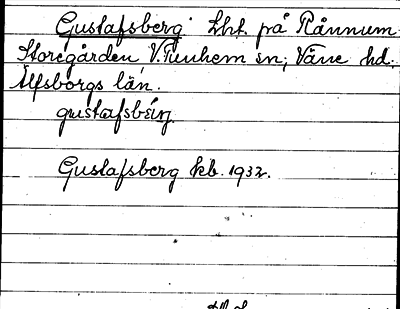 Gustafsberg Lht. på Rånnum
Storegården V. Tunhem sn; Väne hd.
Älfsborgs län.
gustafsbærj.
Gustafsberg kb. 1932.